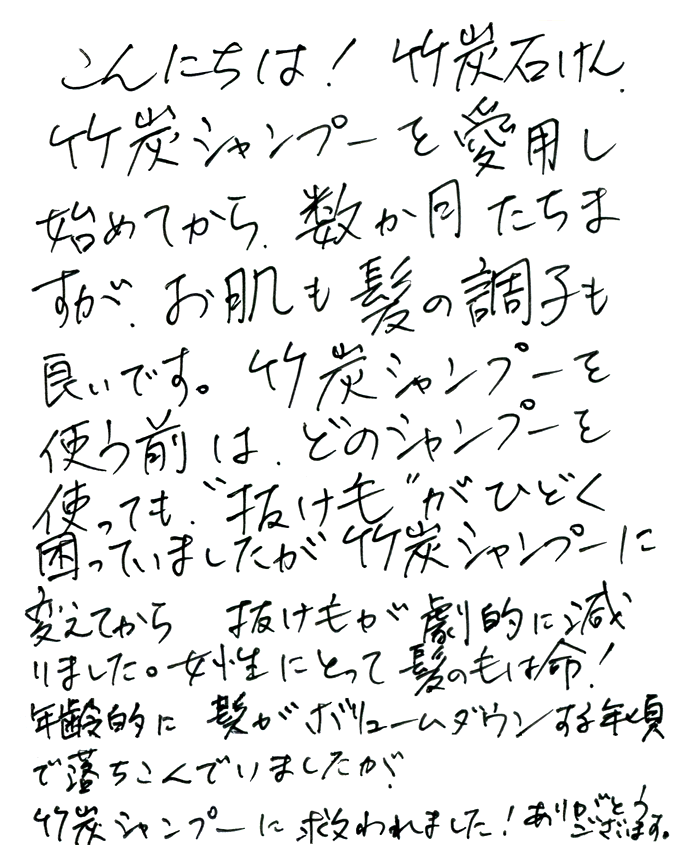 こんにちは！ 竹炭石けん、
竹炭シャンプーを愛用し
始めてから、数か月たちま
すが、お肌も髪の調子も
良いです。竹炭シャンプーを
使う前は、どのシャンプーを
使っても、“抜け毛”がひどく
困っていましたが竹炭シャンプーに
変えてから 抜け毛が劇的に減
りました。女性にとって髪の毛は命！
年齢的に 髪がボリュームダウンする年頃
で落ちこんでいましたが、
竹炭シャンプーに救われました！ありがとう
ございます。